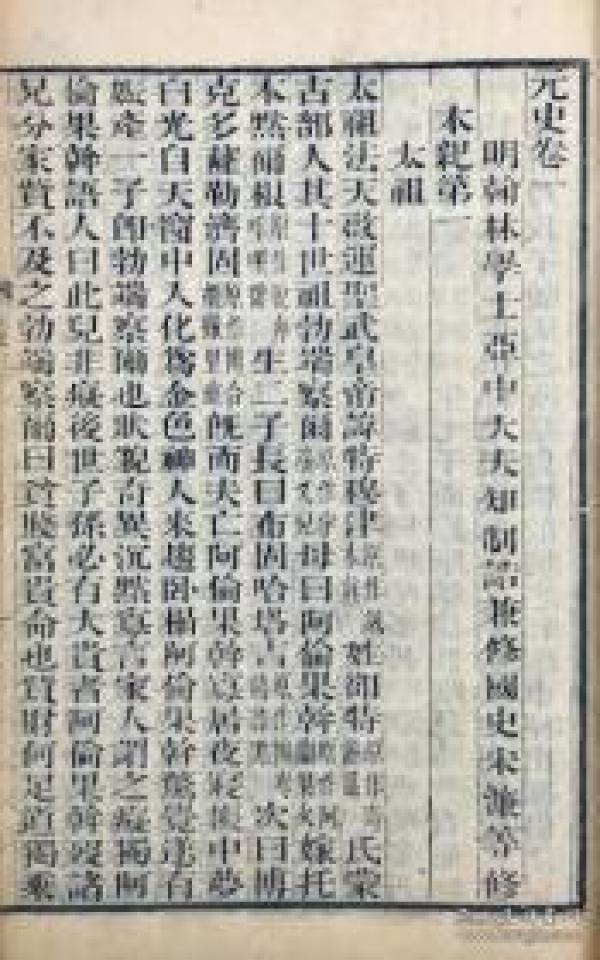 元史卷一
明翰林學士亞中大夫知制誥兼修國史宋濂等修
本紀第一
太祖
太祖法天啟運聖武皇帝諱特穆津姓却特氏蒙
古部人其十世祖勃端察爾母曰阿倫果斡嫁托
本黙爾根生二子長曰布固哈塔吉次曰博
克多薩勒濟固既而夫亡阿倫果斡寡居夜寢帳中夢
白光自天窗中入化為金色神人來趨臥榻阿倫果斡驚覺遂有
娠產一子即勃端察爾也狀貌奇異沉黙寡言家人謂之癡獨阿
倫果斡語人曰此兒非癡後世子孫必有大貴者阿倫果斡歿諸
兄分家貲不及之勃端察爾曰貧賤富貴命也貲財何足道獨乘